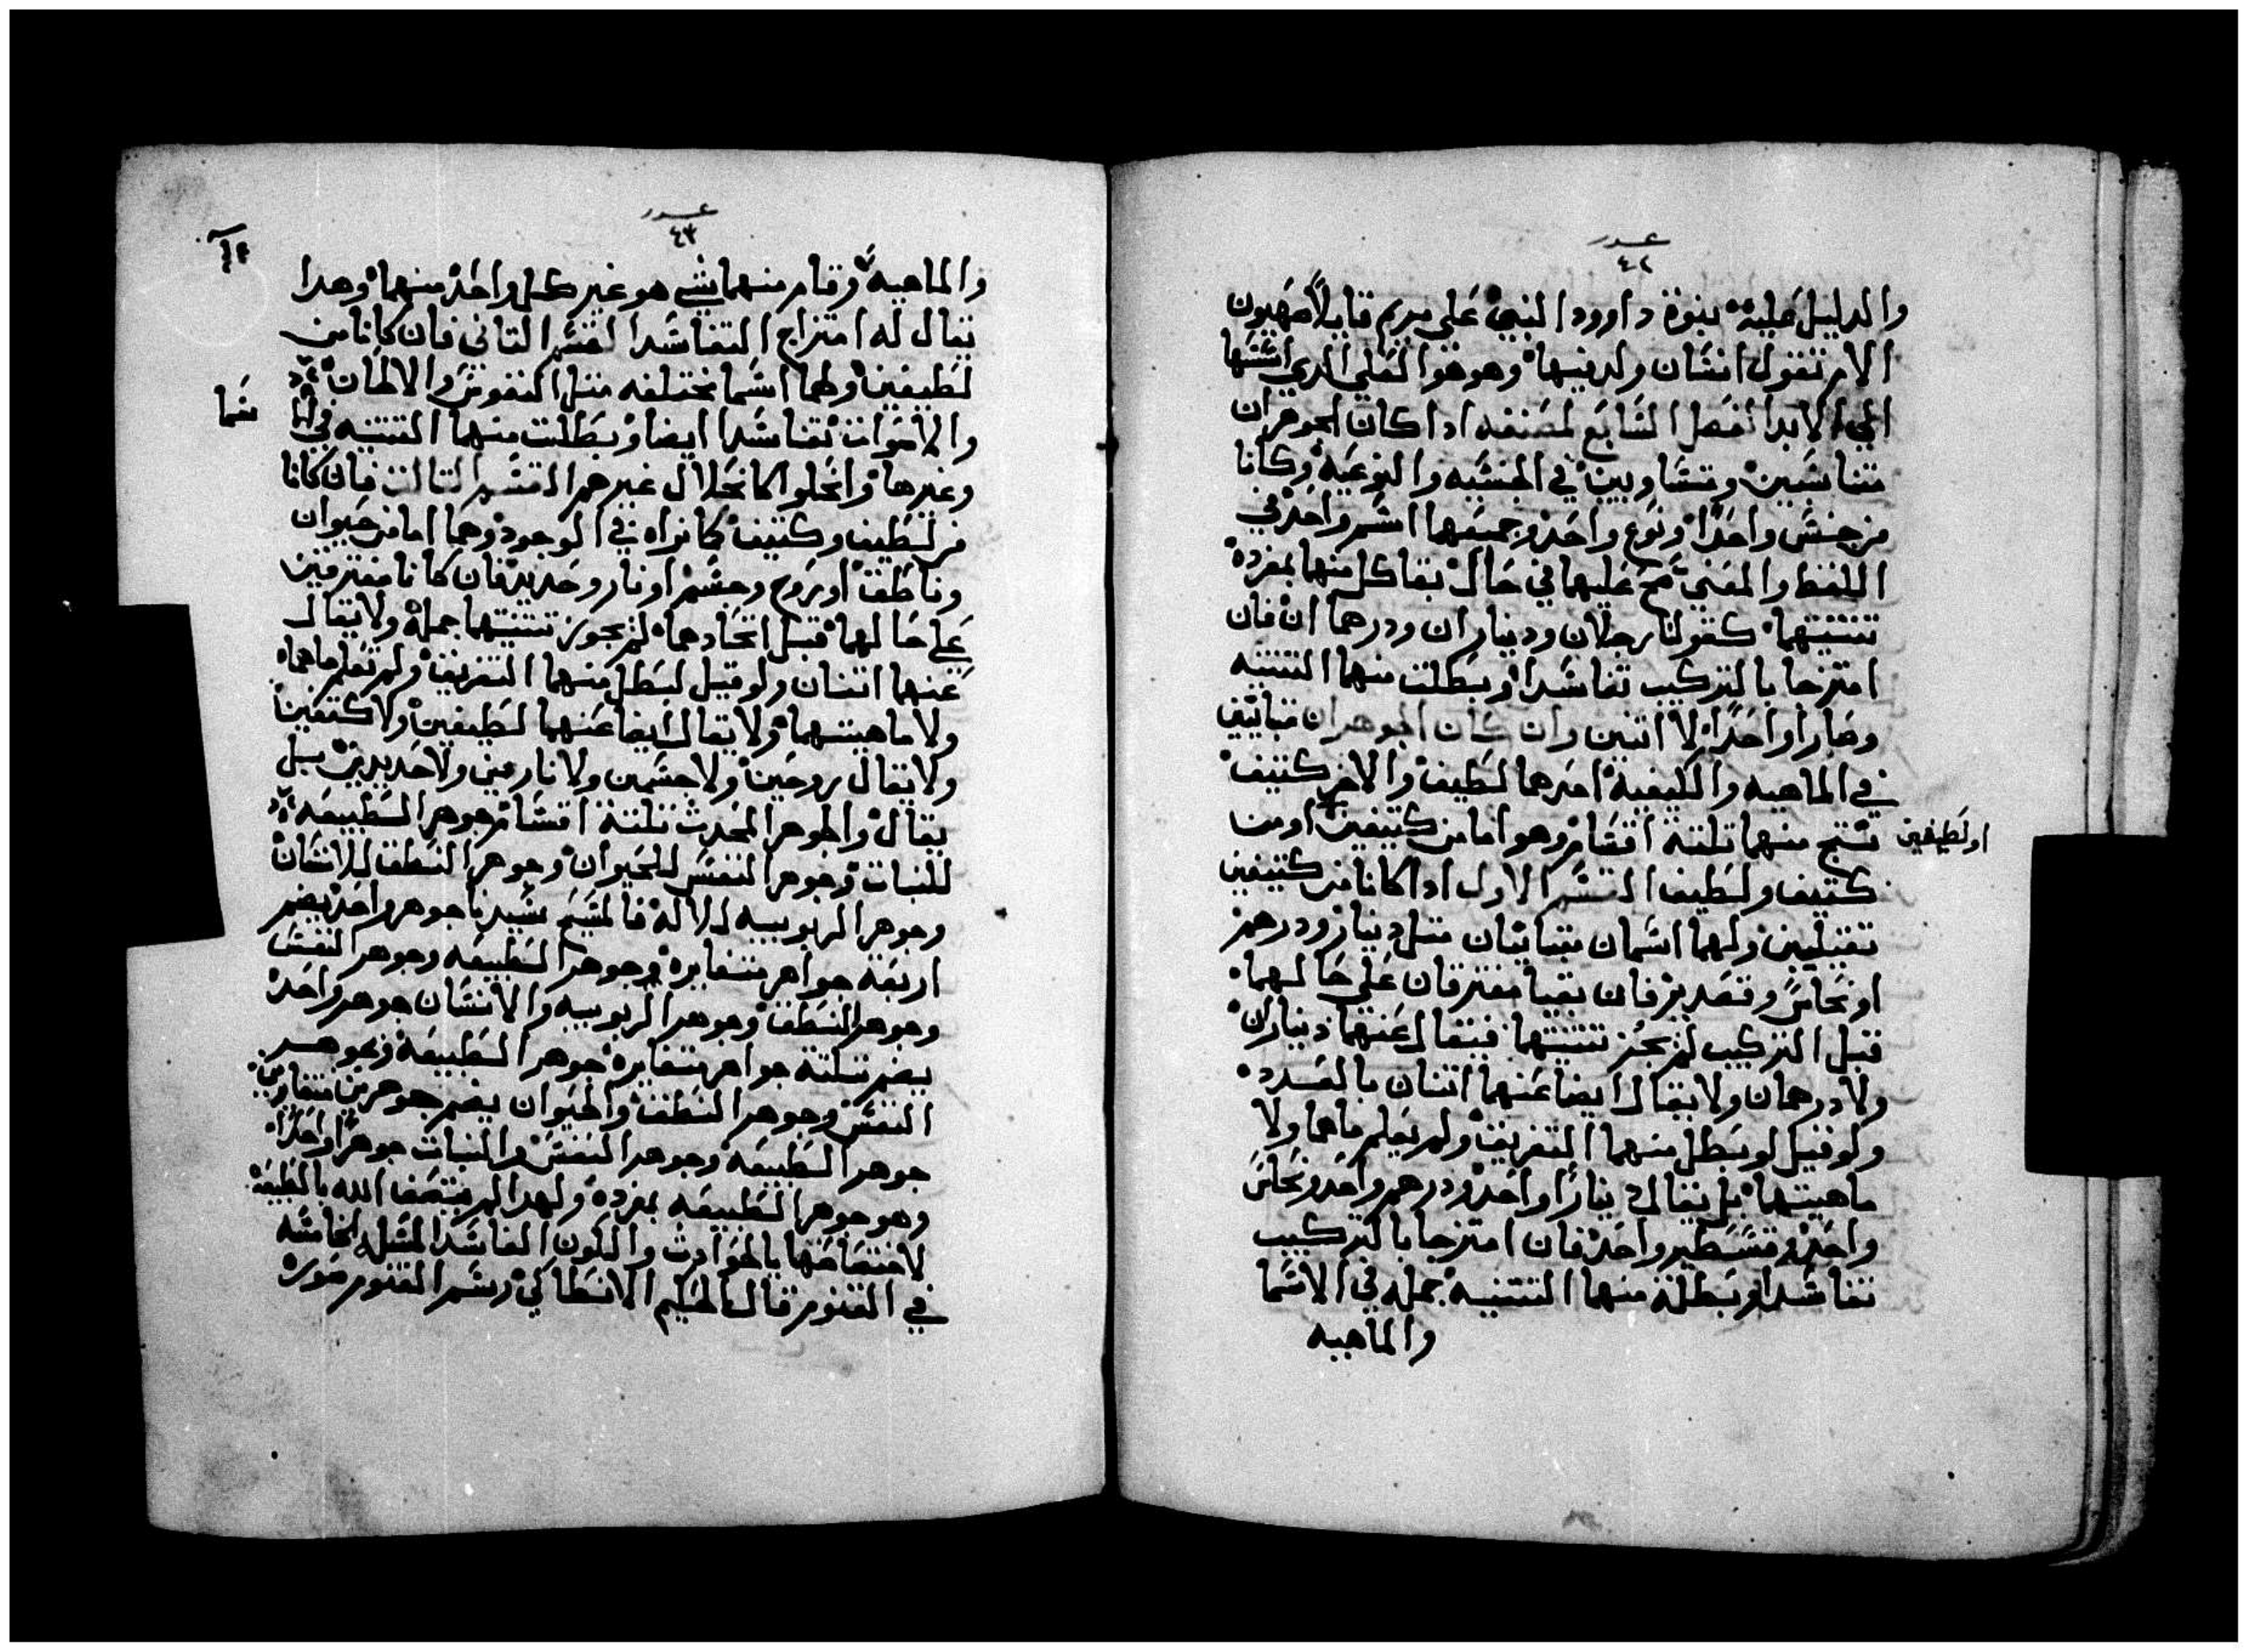 عدد
٤٢
والدليل عليه نبوة داوود النبي علي مريم قايلاً صهيون
الام تقول انسان ولد فيها وهو هو العلي الدي اسسها
الي الابد الفصل السابع لمصنفه ادا كان الجوهران
متناسبين ومتساويين في الجنسيه والنوعيه وكانا
من جنس واحداً ونوع واحد وجمعهما اسم واحد في
اللفظ والمعني صح عليهما في حال بقا كل منهما بمفرده
تتنيتهما كقولنا رجلان وديناران ودرهمان فان
امتزجا بالتركيب تفاسدا وبطلت منهما التتنيه
وصارا واحداً لا اتنين وان كان الجوهران متباينين
في الماهيه والكيفية احدهما لطيف والاخر كتيف
نتج منهما تلتة اقسام وهو اما من كتيفين او من
او لطيفين
كتيف ولطيف القسم الاول ادا كانا من كتيفين
تقيلين ولهما اسمان متباينان متل دينار ودرهم
او نحاس وقصدير فان بقيا مفترقان علي حالهما
قبل التركيب لم يجز تتنيتهما فيقال عنهما ديناران
ولا درهمان ولا يقال ايضا عنهما اتنان بالعدد
ولو قيل لو بطل منهما التفريق ولم يعلم ماهما ولا
ماهيتهما بل يقال ديناراً واحد ودرهم واحد ونحاس
واحد وقسطير واحد فان امتزجا بالتركيب
تفاسدا وبطلة منهما التتنيه جمله في الاسما
والماهيه
عدد
٤٣
والماهيه وقام منهما شي هو غير كل واحد منهما وهدا
يقال له امتزاج التفاسد القسم التاني فان كانا من
لطيفين ولهما اسما مختلفه متل النفوس والالحان
والاصوات تفاسدا ايضا وبطلت منهما التتنيه في
سما
وغيرها وانحلوا كانحلال غيرهم القسم التالت فان كانا
من لطيف وكتيف كما نراه في الوجود وهما اما من حيوان
وناطق او روح وجسم او نار وحديد فان كانا مفترقين
علي حالهما قبل اتحادهما لم يجوز تتنيتهما جملة ولا يقال
عنهما اتنان ولو قيل لبطل منهما التفريق ولم تعلم ماهما
ولا ماهيتهما ولا يقال ايضا عنهما لطيفين ولا كتيفين
ولا يقال روحين ولا جسمين ولا نارين ولا حديدين بل
يقال والجوهر المحدث تلتة اقسام جوهر الطبيعه
للنبات وجوهر النفس للحيوان وجوهر النطق للانسان
وجوهر الربوبيه للاله فالمسيح سيدنا جوهر واحد يضم
اربعة جواهر متغايره جوهر الطبيعه وجوهر النفس
وجوهر النطق وجوهر الربوبيه والانسان جوهر واحد
يضم تلتة جواهر متغايره جوهر الطبيعة وجوهر
النفس وجوهر النطق والحيوان يضم جوهرين متغايرين
جوهر الطبيعه وجوهر النفس والنبات جوهراً واحداً
وهو جوهر الطبيعه بمفرده ولهدا لم يتصف الله بالطبيعة
لاختصاصها بالحوادث والكون الفاسد المسله الخامسه
في القنوم قال الحكيم الانطاكي رسم القنوم صوره